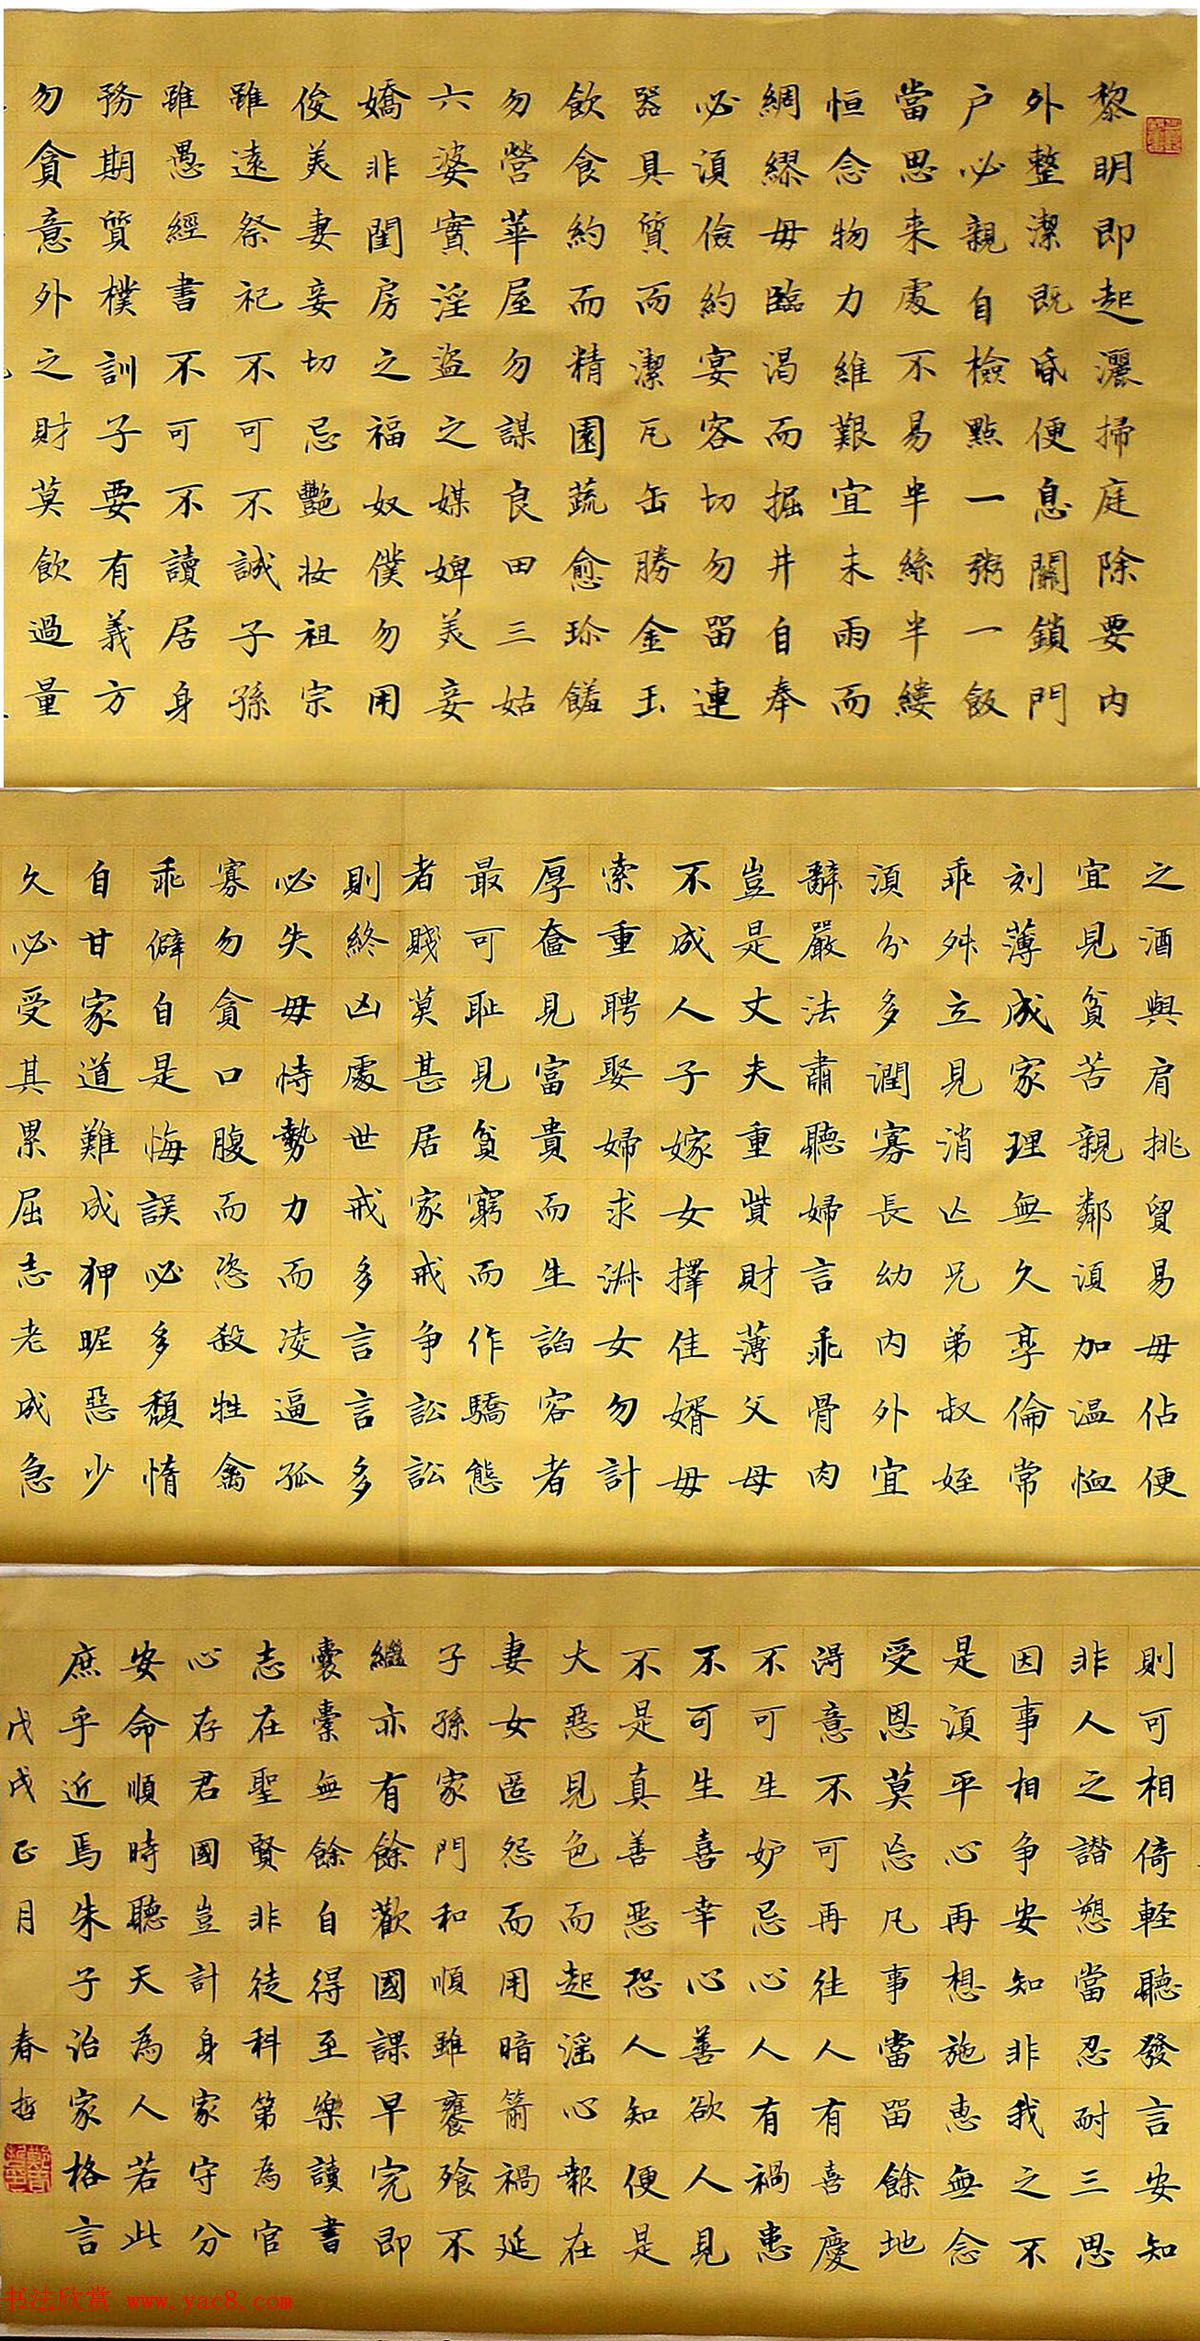 黎明即起灑掃庭除要内
外整潔既昏便息關鎖門
户必親自檢點一粥一飯
當思来處不易半絲半縷
恒念物力維艱宜未雨而
綢繆毋臨渴而掘井自奉
必須儉約宴客切勿留連
器具質而潔瓦缶勝金玉
飲食約而精園蔬愈珍饈
勿營華屋勿謀良田三姑
六婆實淫盜之媒婢美妾
嬌非閨房之福奴僕勿用
俊美妻妾切忌艷妝祖宗
雖遠祭祀不可不誠子孫
雖愚經書不可不讀居身
務期質樸訓子要有義方
勿貪意外之財莫飲過量
之酒與肩挑貿易毋佔便
宜見貧苦親鄰須加温恤
刻薄成家理無久享倫常
乖舛立見消亡兄弟叔姪
須分多潤寡長幼内外宜
辭嚴法肅聽婦言乖骨肉
豈是丈夫重貲財薄父母
不成人子嫁女擇佳婿毋
索重聘娶婦求淑女勿計
厚奩見富貴而生諂容者
最可耻見貧窮而作驕態
者賤莫甚居家戒争訟訟
則終凶處世戒多言言多
必失毋恃勢力而凌逼孤
寡勿貪口腹而恣殺牲禽
乖僻自是悔誤必多頹惰
自甘家道難成狎昵惡少
久必受其累屈志老成急
則可相倚輕聽發言安知
非人之譖愬當忍耐三思
因事相争安知非我之不
是須平心再想施惠無念
受恩莫忘凡事當留餘地
得意不可再往人有喜慶
不可生妒忌心人有禍患
不可生喜幸心善欲人見
不是真善惡恐人知便是
大惡見色而起淫心報在
妻女匿怨而用暗箭禍延
子孫家門和順雖饔飧不
繼亦有餘歡國課早完即
囊橐無餘自得至樂讀書
志在聖賢非徒科第為官
心存君國豈計身家守分
安命順時聽天為人若此
庶乎近焉朱子治家格言
戊戌正月 春哲
书法欣赏 www.yac8.com